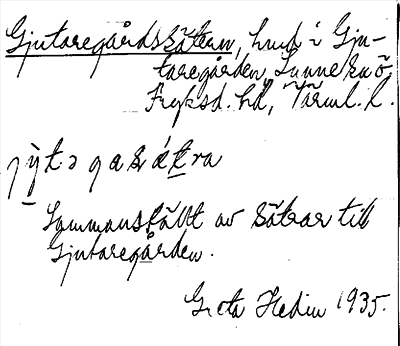 Gjutaregårdssätern, hmd i Gju-
taregården, Sunne sn ö,
Fryksd. hd, Värml. l.
Sammanställt av Sätrar till
Gjutaregården.
Greta Hedin 1935.